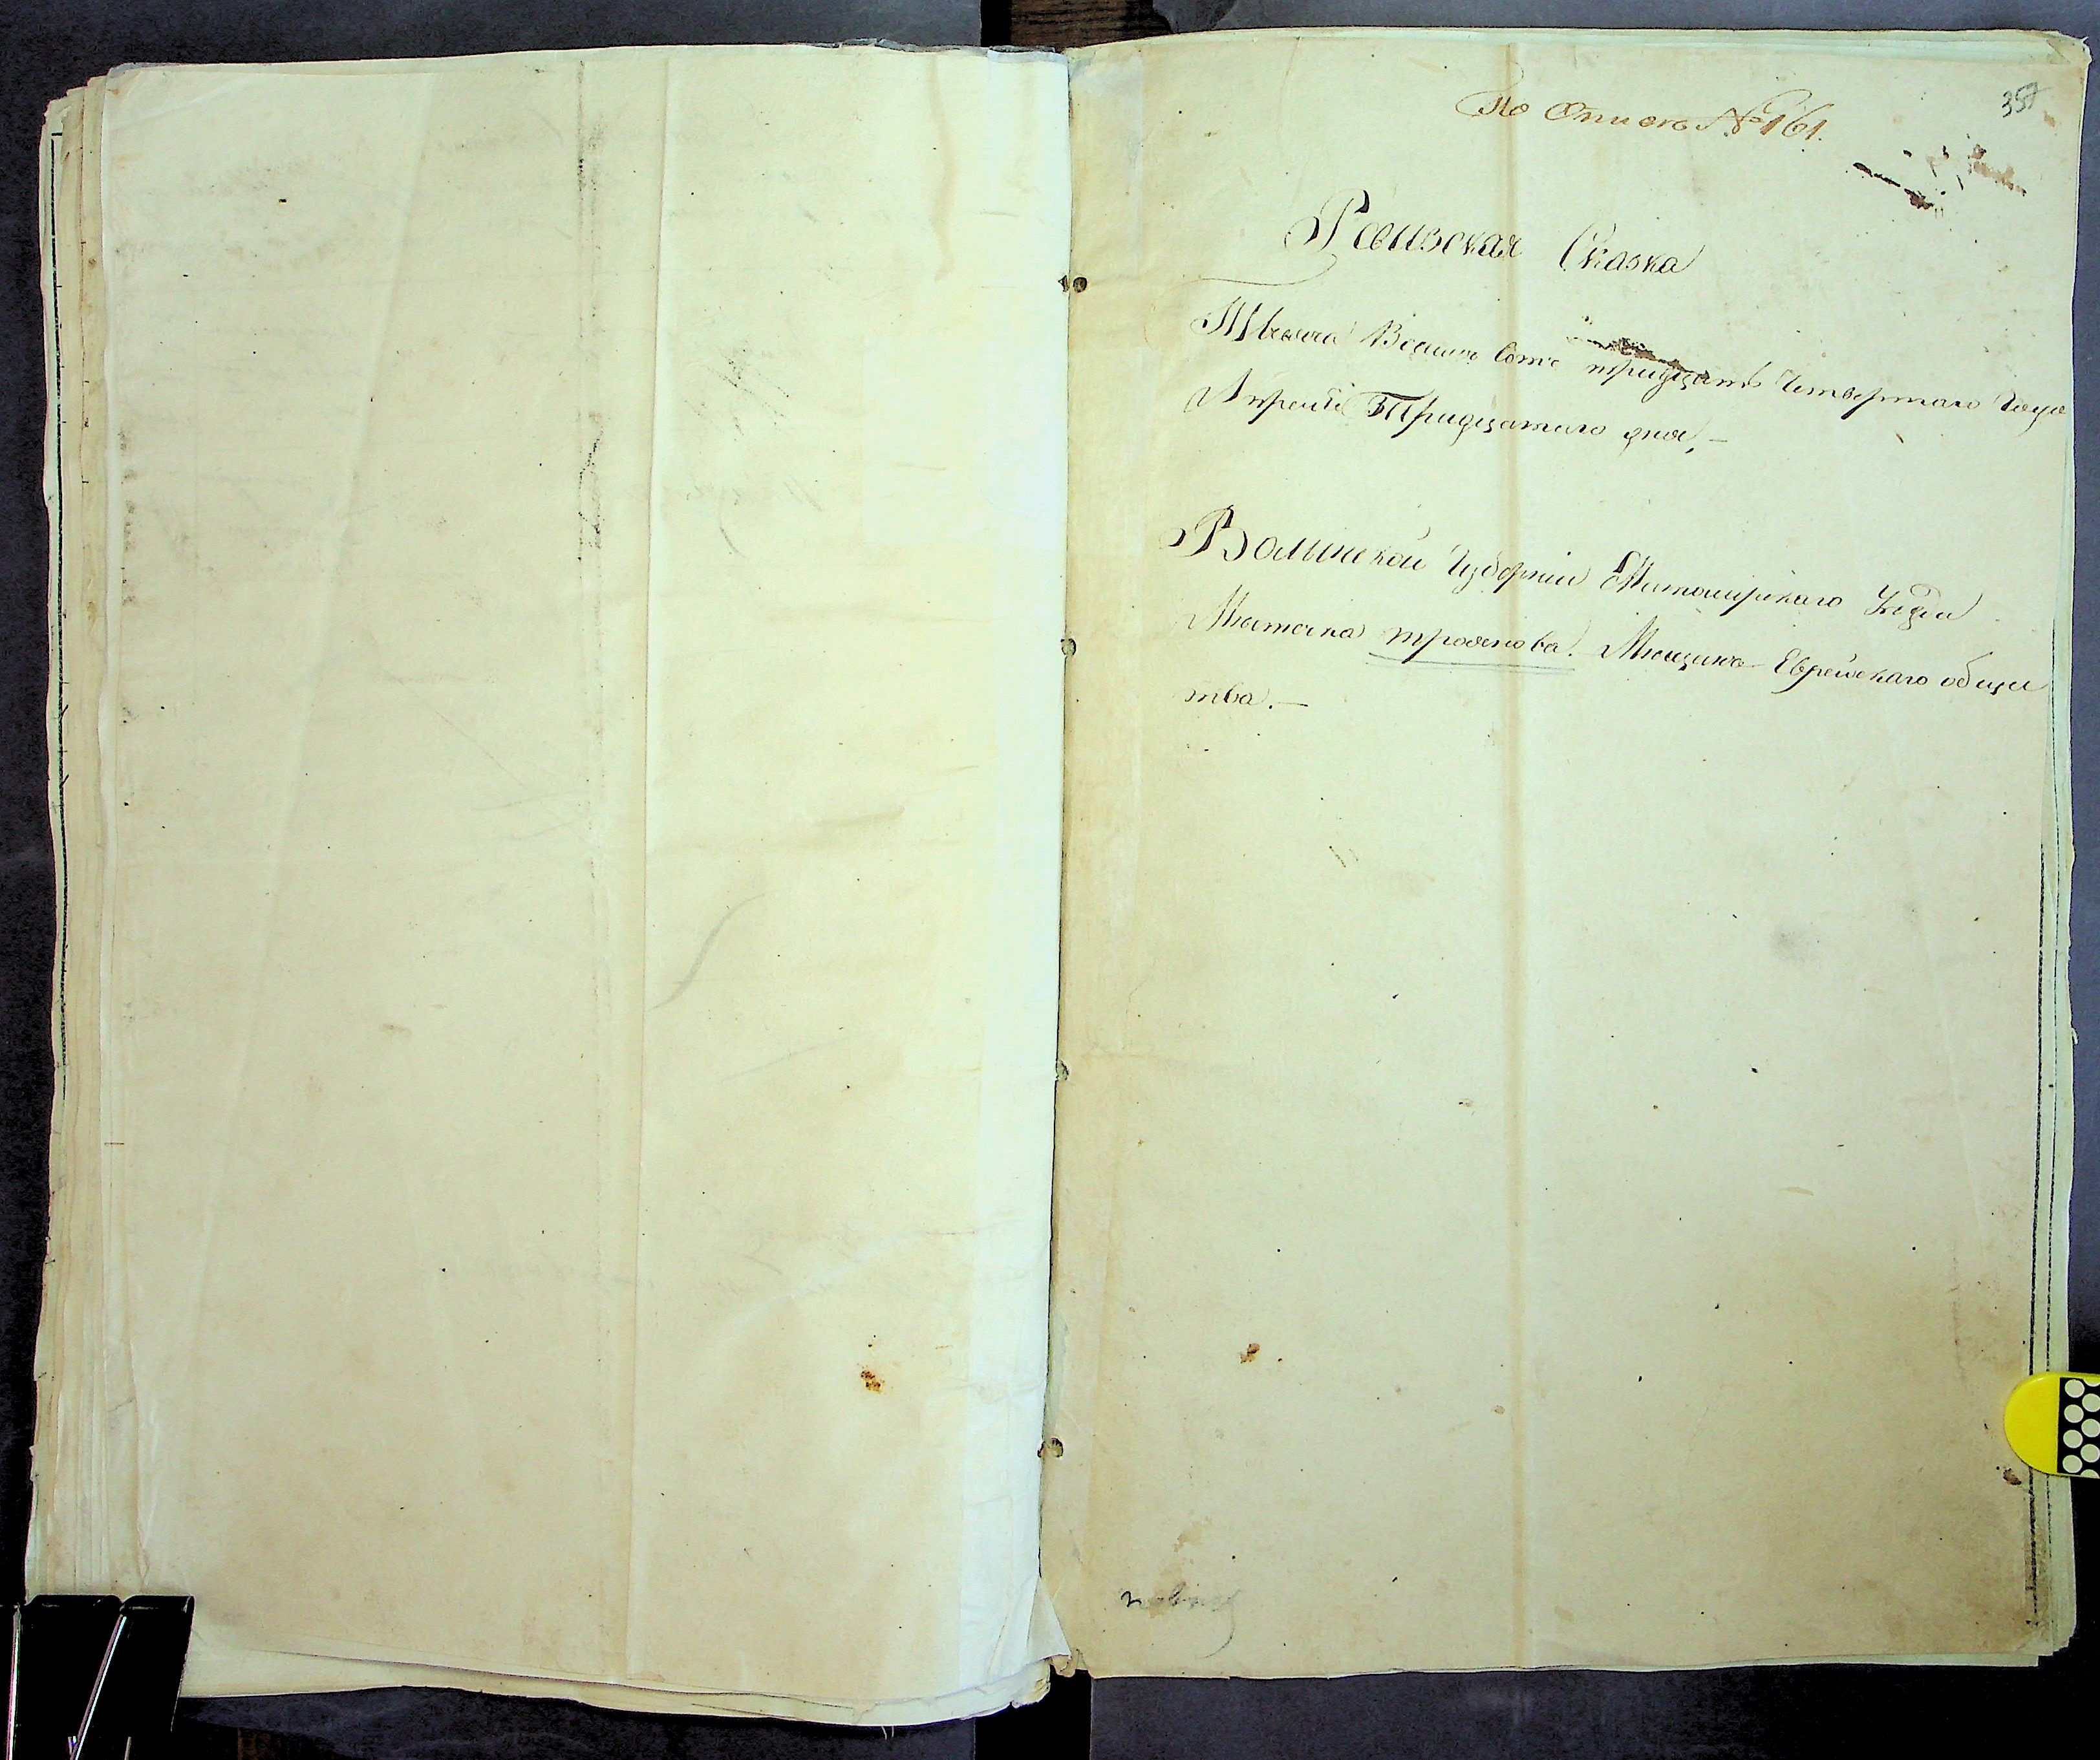 По Описи № 161.
357
Ревизская Сказка
Тысяча Восемь Сотъ тридцать Четвертаго Года
Апреля Тридцатаго дня,—
Волынской Губерніи Житомирскаго Уезда
Местечка Троянова. Мещанъ Еврейскаго общес
тва.—